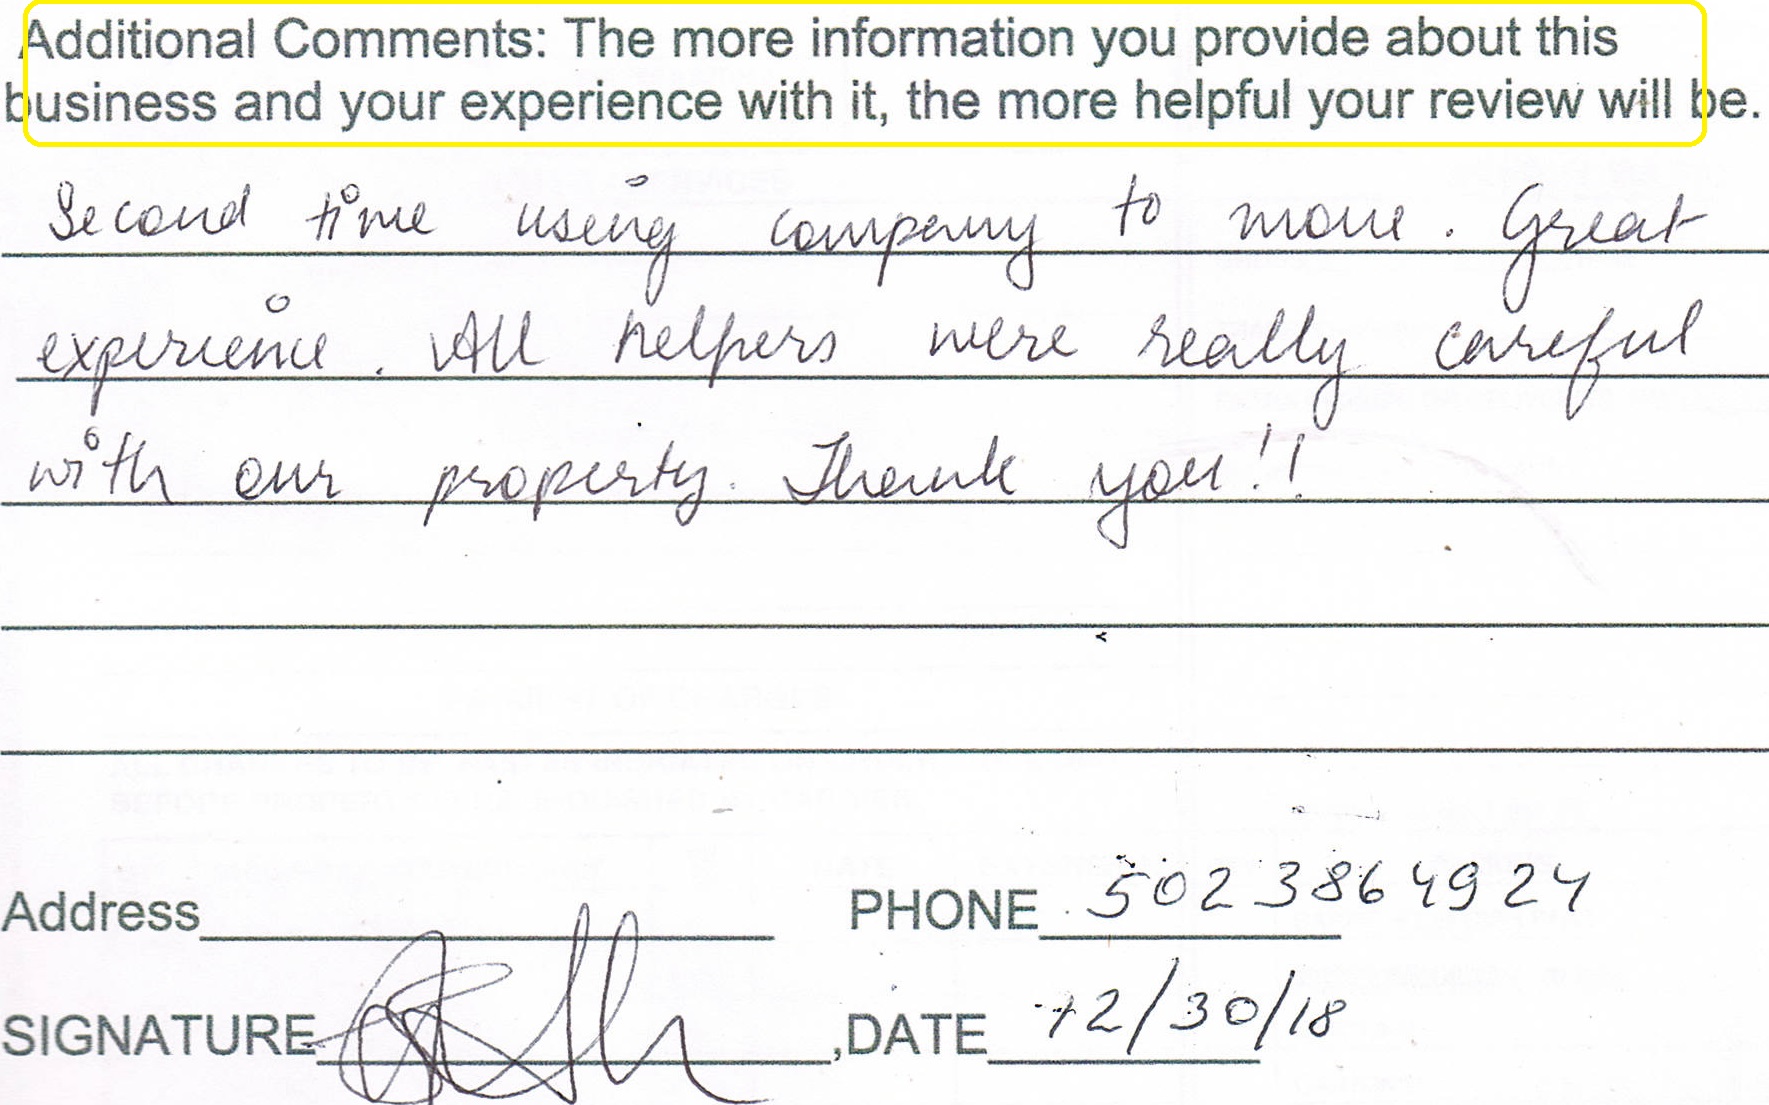 Additional Comments: The more information you provide about this
business and your experience with it, the more helpful your review will be.
Second time using company to move. Great
experience. All helpers were really careful
with our property. Thank you!!
Address PHONE 5023864924
SIGNATURE ,DATE 12/30/18